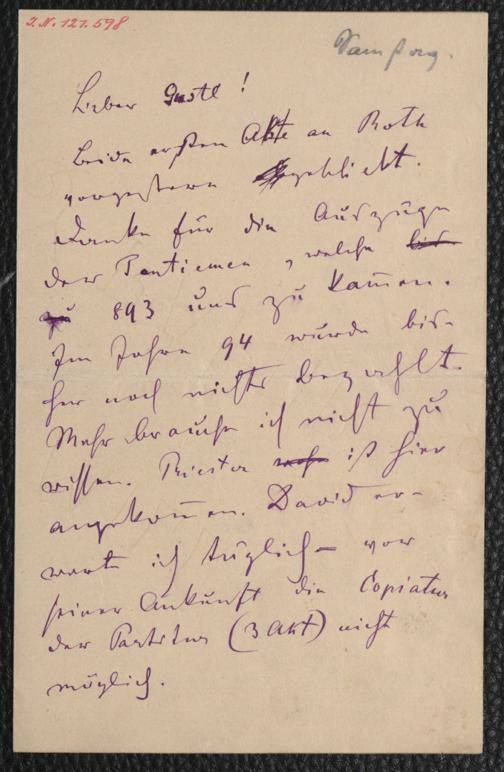 J. N. 121.598
Samstag.
Lieber Gustl!
beide ersten Akte an Roth
vorgestern abgeschickt.
Danke für die Auszüge
der Tantiemen, welche bis
zu 893 uns zu kamen.
Im Jahre 94 wurde bis-
her noch nichts bezahlt.
Mehr brauche ich nicht zu
wissen. Priester ist hier
angekommen. David er-
warte ich täglich – vor
seiner Ankunft die Copiatur
der Partitur (3 Akt) nicht
möglich.